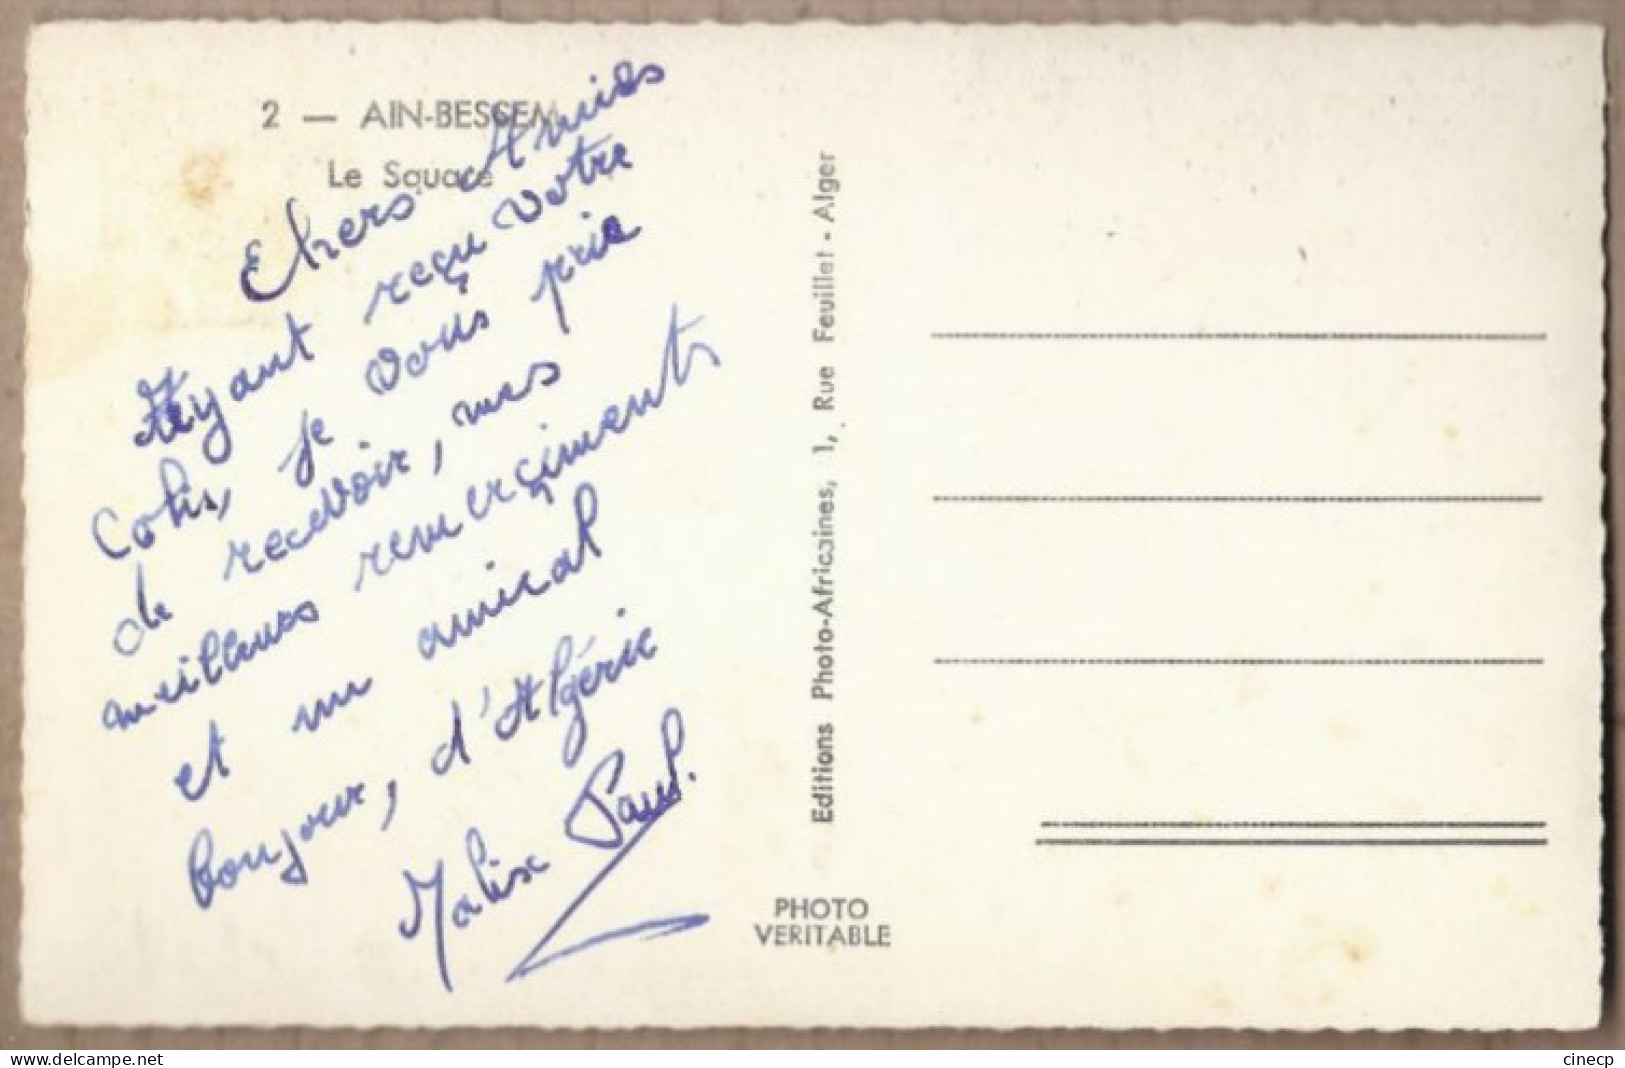 2 — AIN-BESSEM
Le Square
Chers Amies
Ayant reçu votre
Colis, je vous prie
de recevoir, mes
meilleurs remerçiments
et un amical
bonjour, d'Algérie
Malix Paul.
Editions Photo-Africaines, 1, Rue Feuillet - Alger
PHOTO
VERITABLE
delcampe.net
cinecp